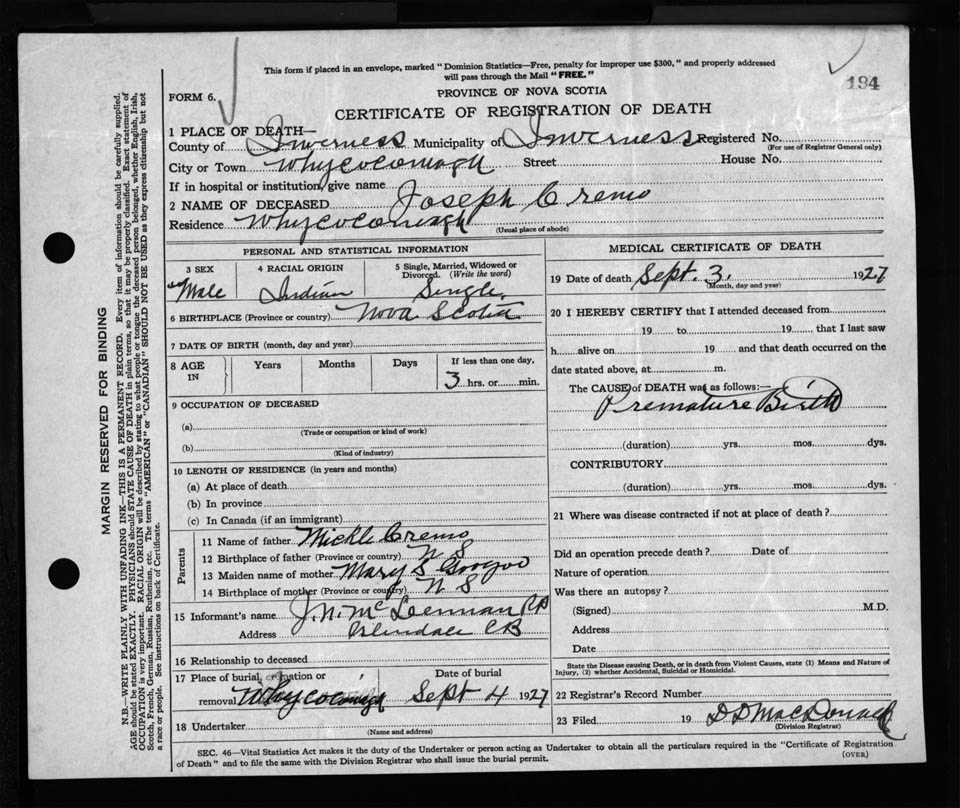 This form if placed in an envelope, marked "Dominion Statistics—Free, penalty for improper use $300," and properly addressed
will pass through the Mail "FREE."
184
FORM 6.
PROVINCE OF NOVA SCOTIA
CERTIFICATE OF REGISTRATION OF DEATH
1 PLACE OF DEATH—
County of Inverness Municipality of Inverness Registered No.
(For use of Registrar General only)
City or Town Whycocomagh Street House No.
If in hospital or institution, give name
2 NAME OF DECEASED Joseph Cremo
Residence Whycocomagh
(Usual place of abode)
PERSONAL AND STATISTICAL INFORMATION
3 SEX 4 RACIAL ORIGIN 5 Single, Married, Widowed or Divorced. (Write the word)
Male Indian Single
6 BIRTHPLACE (Province or country) Nova Scotia
7 DATE OF BIRTH (month, day and year)
8 AGE IN Years Months Days If less than one day,
3 hrs. or min.
9 OCCUPATION OF DECEASED
(a)
(Trade or occupation or kind of work)
(b)
(Kind of industry)
10 LENGTH OF RESIDENCE (in years and months)
(a) At place of death
(b) In province
(c) In Canada (if an immigrant)
Parents
11 Name of father Michl Cremo
12 Birthplace of father (Province or country) N S
13 Maiden name of mother Mary S Googoo
14 Birthplace of mother (Province or country) N S
15 Informant's name J. N. McLennan PP
Address Glendale CB
16 Relationship to deceased
17 Place of burial, cremation or Date of burial
removal Whycocomagh Sept 4 1927
18 Undertaker
(Name and address)
MEDICAL CERTIFICATE OF DEATH
19 Date of death Sept. 3, 1927
(Month, day and year)
20 I HEREBY CERTIFY that I attended deceased from
19 to 19 that I last saw
h alive on 19 and that death occurred on the
date stated above, at m.
The CAUSE of DEATH was as follows:—
Premature Birth
(duration) yrs. mos. dys.
CONTRIBUTORY
(duration) yrs. mos. dys.
21 Where was disease contracted if not at place of death?
Did an operation precede death? Date of
Nature of operation
Was there an autopsy?
(Signed) M.D.
Address
Date
State the Disease causing Death, or in death from Violent Causes, state (1) Means and Nature of
Injury, (2) whether Accidental, Suicidal or Homicidal.
22 Registrar's Record Number
23 Filed 19 D D MacDonald
(Division Registrar)
SEC. 46—Vital Statistics Act makes it the duty of the Undertaker or person acting as Undertaker to obtain all the particulars required in the "Certificate of Registration
of Death" and to file the same with the Division Registrar who shall issue the burial permit.
(OVER)
MARGIN RESERVED FOR BINDING
N.B.—WRITE PLAINLY WITH UNFADING INK—THIS IS A PERMANENT RECORD. Every item of information should be carefully supplied.
AGE should be stated EXACTLY. PHYSICIANS should STATE CAUSE OF DEATH in plain terms, so that it may be properly classified. Exact statement of
OCCUPATION is very important. RACIAL ORIGIN will be described by stating to what people or tongue the deceased person belonged, whether English, Irish,
Scotch, French, German, Russian, Ruthenian, etc. The terms "AMERICAN" or "CANADIAN" SHOULD NOT BE USED as they express citizenship but not
a race or people. See instructions on back of Certificate.